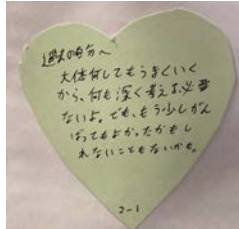 過去の自分へ
大体何してもうまくいく
から、何も深く考える必要
ないよ。でも、もう少しがん
ばってもよかったかもし
れないこともないかも。
2-1